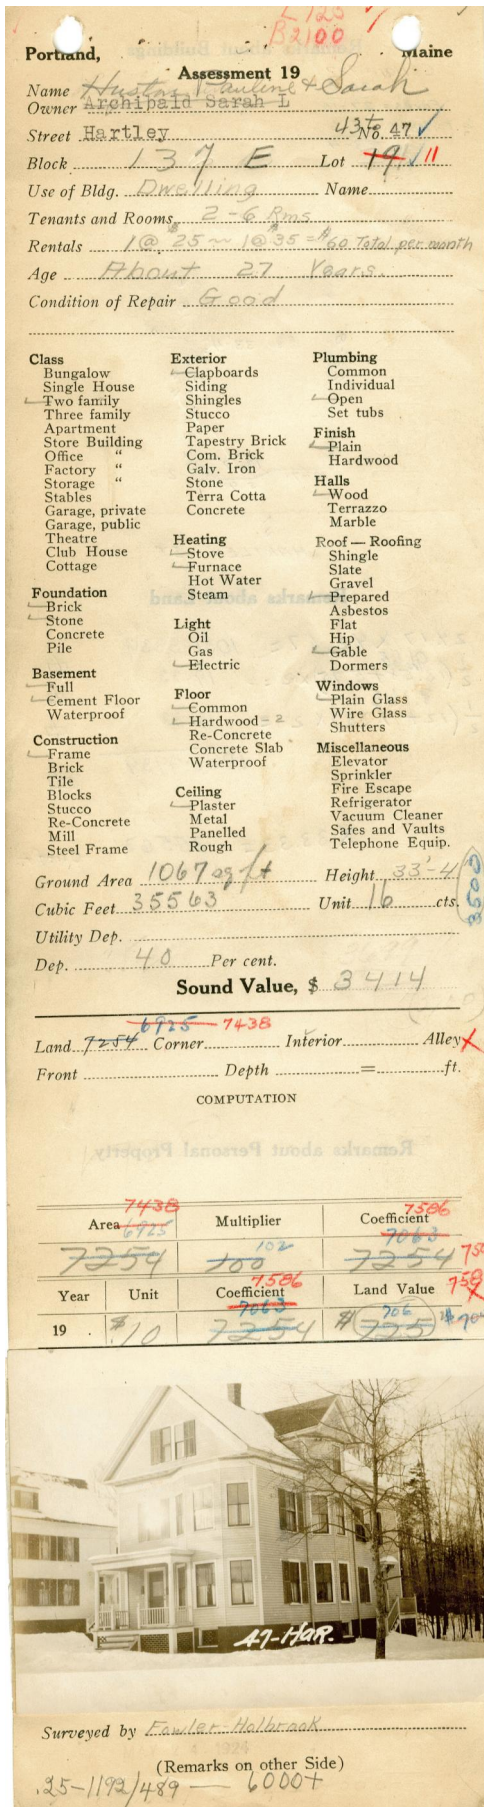 L 125
B 2100
Portland, Maine
Assessment 19
Name Huston Pauline & Sarah
Owner Archibald Sarah L
Street Hartley 43 to No. 47
Block 137 E Lot 19 11
Use of Bldg. Dwelling Name
Tenants and Rooms 2-6 Rms
Rentals 1@$25 ~ 1@$35 = $60 Total per month
Age About 27 Years.
Condition of Repair Good
Class
Bungalow
Single House
Two family
Three family
Apartment
Store Building
Office "
Factory "
Storage "
Stables
Garage, private
Garage, public
Theatre
Club House
Cottage
Foundation
Brick
Stone
Concrete
Pile
Basement
Full
Cement Floor
Waterproof
Construction
Frame
Brick
Tile
Blocks
Stucco
Re-Concrete
Mill
Steel Frame
Exterior
Clapboards
Siding
Shingles
Stucco
Paper
Tapestry Brick
Com. Brick
Galv. Iron
Stone
Terra Cotta
Concrete
Heating
Stove
Furnace
Hot Water
Steam
Light
Oil
Gas
Electric
Floor
Common
Hardwood - 2
Re-Concrete
Concrete Slab
Waterproof
Ceiling
Plaster
Metal
Panelled
Rough
Plumbing
Common
Individual
Open
Set tubs
Finish
Plain
Hardwood
Halls
Wood
Terrazzo
Marble
Roof — Roofing
Shingle
Slate
Gravel
Prepared
Asbestos
Flat
Hip
Gable
Dormers
Windows
Plain Glass
Wire Glass
Shutters
Miscellaneous
Elevator
Sprinkler
Fire Escape
Refrigerator
Vacuum Cleaner
Safes and Vaults
Telephone Equip.
Ground Area 1067 sq ft Height 33'-4"
Cubic Feet 35563 Unit 16 cts.
3500
Utility Dep.
Dep. 40 Per cent.
Sound Value, $ 3414
6925 7438
Land 7254 Corner Interior Alley
Front Depth = ft.
COMPUTATION
7438 7586
Area 6925 Multiplier Coefficient 7063
7254 100 102 7254
7586
Year Unit Coefficient Land Value
7063 706
19 . $10 7254 $ 725
47-HAR.
Surveyed by Fowler-Holbrook
(Remarks on other Side)
.25-1192/489 — 6000+